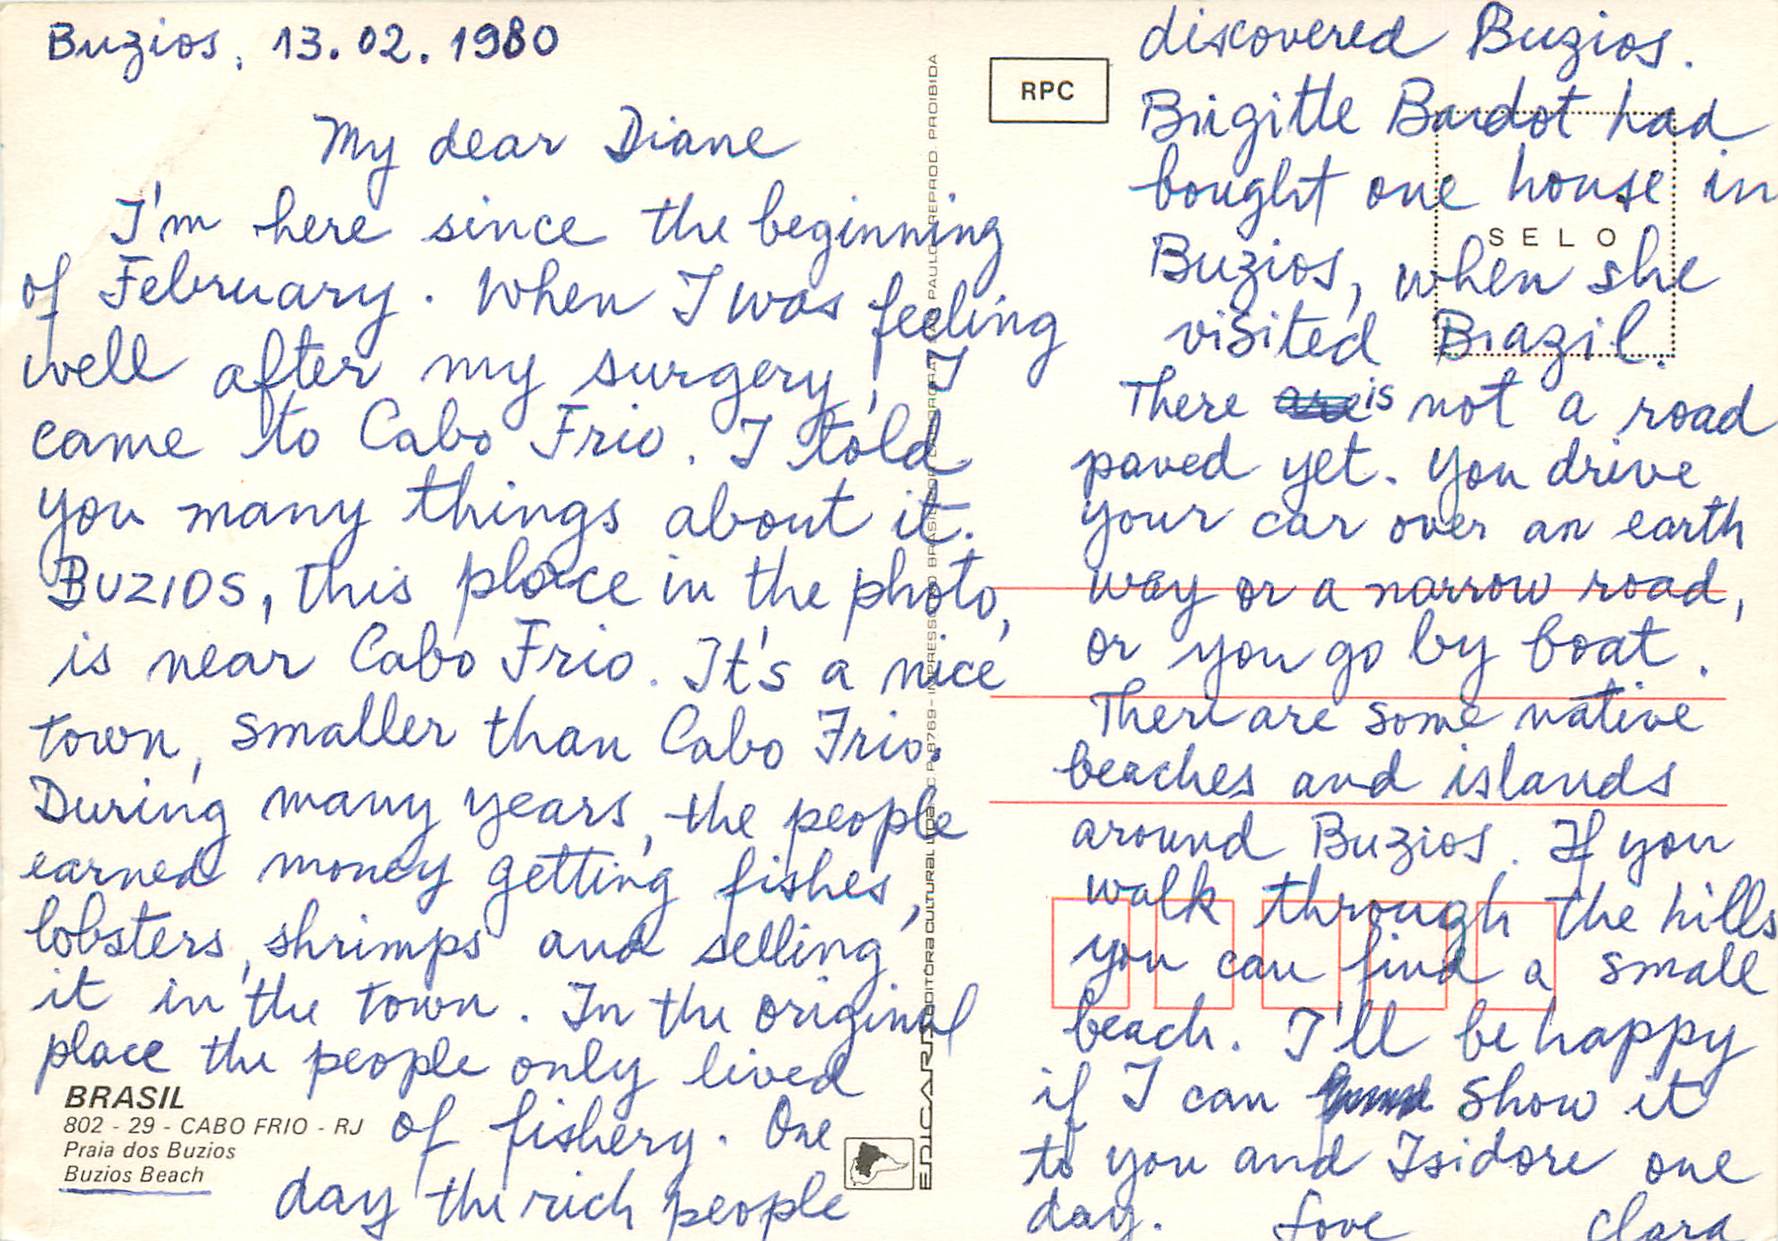 Buzios, 13.02.1980
My dear Diane
I'm here since the beginning
of February. When I was feeling
well after my surgery, I
came to Cabo Frio. I told
you many things about it.
BUZIOS, this place in the photo,
is near Cabo Frio. It's a nice
town, smaller than Cabo Frio.
During many years, the people
earned money getting fishes,
lobsters, shrimps and selling
it in the town. In the original
place the people only lived
of fishery. One
day the rich people
BRASIL
802 - 29 - CABO FRIO - RJ
Praia dos Buzios
Buzios Beach
EDICARD EDITORA CULTURAL LTDA
PAULO REPROD PROIBIDA
RPC
SELO
discovered Buzios.
Brigitte Bardot had
bought one house in
Buzios, when she
visited Brazil.
There are is not a road
paved yet. You drive
your car over an earth
way or a narrow road,
or you go by boat.
There are some native
beaches and islands
around Buzios. If you
walk through the hills
you can find a small
beach. I'll be happy
if I can show it
to you and Isidore one
day. Love Clara